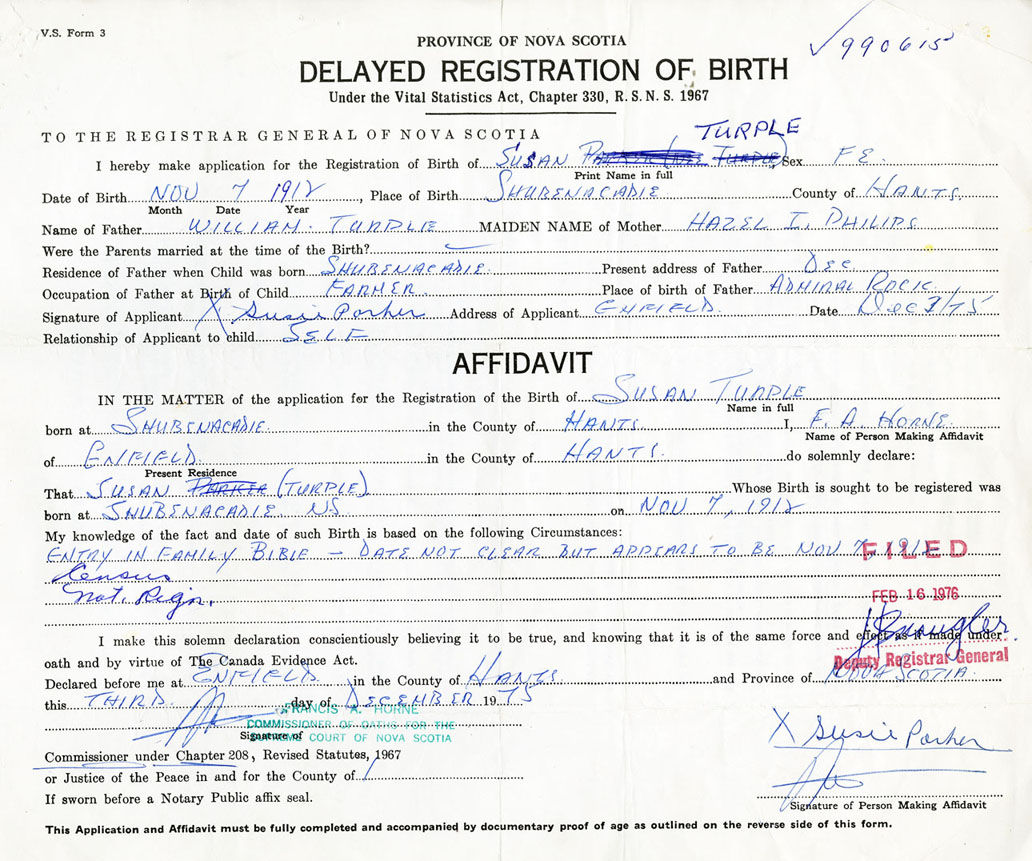 V.S. Form 3
✓990615
PROVINCE OF NOVA SCOTIA
DELAYED REGISTRATION OF BIRTH
Under the Vital Statistics Act, Chapter 330, R.S.N.S. 1967
TO THE REGISTRAR GENERAL OF NOVA SCOTIA
TURPLE
I hereby make application for the Registration of Birth of SUSAN PARKER (NEE TURPLE) Sex FE.
Print Name in full
Date of Birth NOV 7 1912, Place of Birth SHUBENACADIE County of HANTS.
Month Date Year
Name of Father WILLIAM TURPLE MAIDEN NAME of Mother HAZEL I. PHILIPS
Were the Parents married at the time of the Birth? ✓
Residence of Father when Child was born SHUBENACADIE. Present address of Father DEC.
Occupation of Father at Birth of Child FARMER. Place of birth of Father ADMIRAL ROCK
Signature of Applicant X Susie Parker Address of Applicant ENFIELD. Date DEC 3/75
Relationship of Applicant to child SELF
AFFIDAVIT
IN THE MATTER of the application for the Registration of the Birth of SUSAN TURPLE
Name in full
born at SHUBENACADIE. in the County of HANTS. I, F. A. HORNE.
Name of Person Making Affidavit
of ENFIELD. in the County of HANTS. do solemnly declare:
Present Residence
That SUSAN PARKER (TURPLE) Whose Birth is sought to be registered was
born at SHUBENACADIE NS on NOV 7, 1912
My knowledge of the fact and date of such Birth is based on the following Circumstances:
ENTRY IN FAMILY BIBLE – DATE NOT CLEAR BUT APPEARS TO BE NOV 7, 1912
FILED
Census
Not. Regn.
FEB 16 1976
I make this solemn declaration conscientiously believing it to be true, and knowing that it is of the same force and effect as if made under
oath and by virtue of The Canada Evidence Act.
Deputy Registrar General
Declared before me at ENFIELD in the County of HANTS. and Province of NOVA SCOTIA.
this THIRD. day of DECEMBER 1975
FRANCIS A. HORNE
COMMISSIONER OF OATHS FOR THE
Signature of
SUPREME COURT OF NOVA SCOTIA
X Susie Parker
Commissioner under Chapter 208, Revised Statutes, 1967
or Justice of the Peace in and for the County of
If sworn before a Notary Public affix seal.
Signature of Person Making Affidavit
This Application and Affidavit must be fully completed and accompanied by documentary proof of age as outlined on the reverse side of this form.